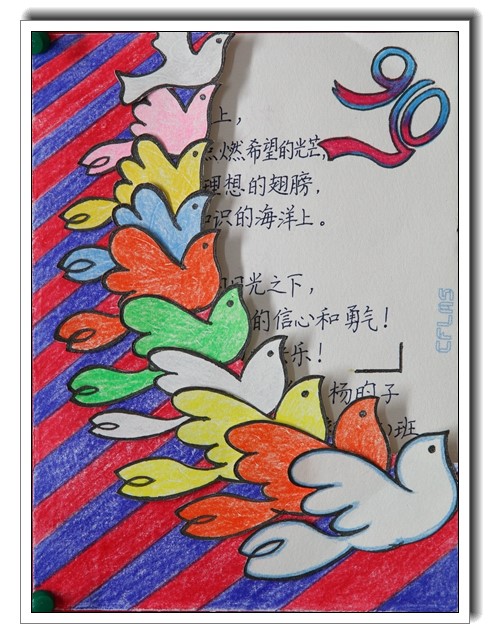 上，
点燃希望的光芒，
理想的翅膀，
识的海洋上。
阳光之下，
的信心和勇气！
乐！
杨昀子
班
CFLMS